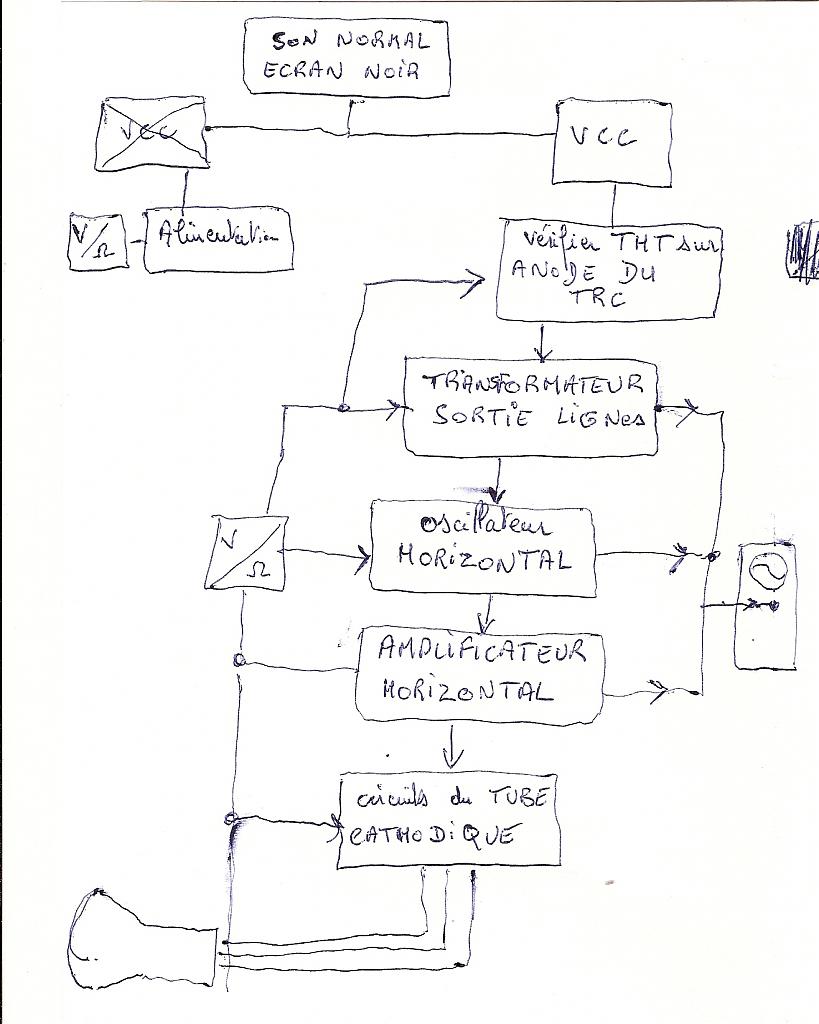 SON NORMAL
ECRAN NOIR
VCC
VCC
V/Ω
Alimentation
Vérifier THT sur
ANODE DU
TRC
TRANSFORMATEUR
SORTIE LiGNes
V
Ω
oscillateur
HORiZONTAL
AMPLiFiCATEUR
HORiZONTAL
circuits du TUBE
CATHODiQUE